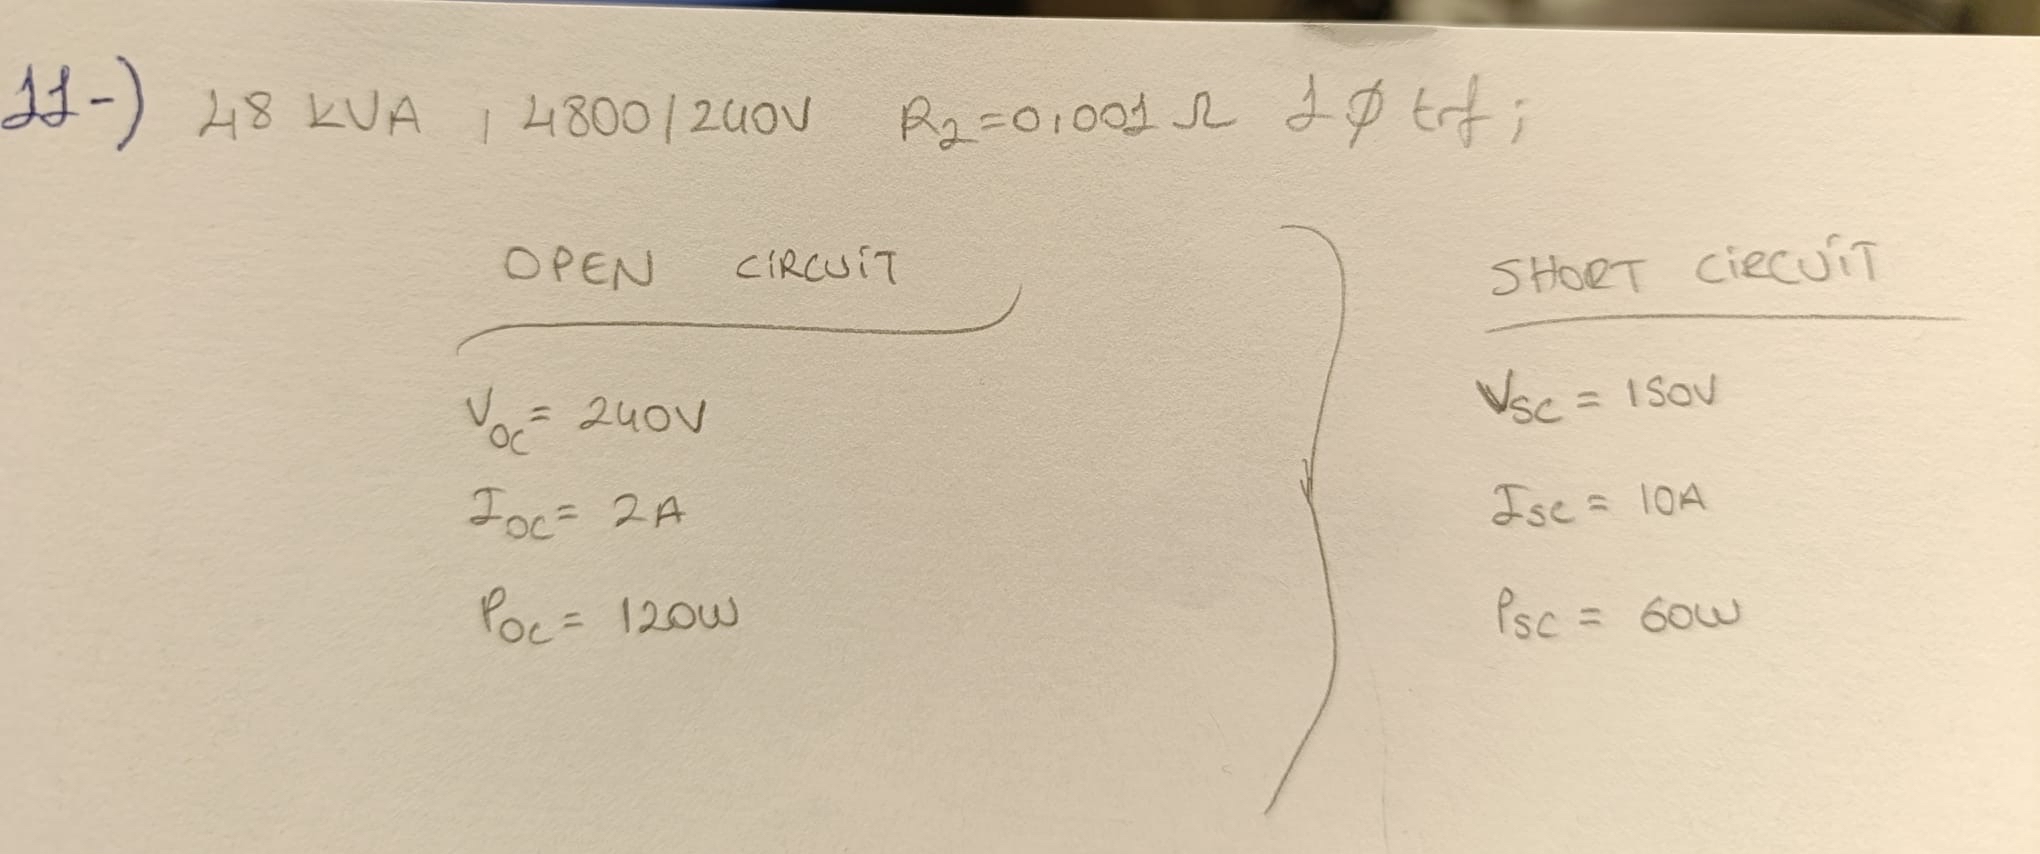 11-) 48 kVA , 4800/240V R2=0,001 Ω 1 Ø trf ;
OPEN CIRCUIT
Voc = 240V
Ioc = 2A
Poc = 120W
SHORT CIRCUIT
Vsc = 150V
Isc = 10A
Psc = 60W